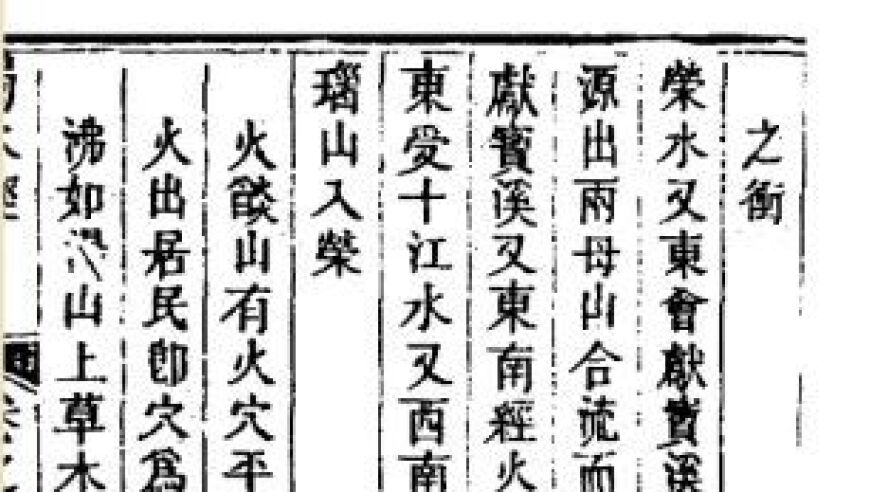 之衝
榮水又東會獻寶溪
源出兩母山合流而
獻寶溪又東南經火
東受十江水又西南
瑙山入榮
火燄山有火穴平
火出居民卽穴爲
沸如山上草木
蜀水經